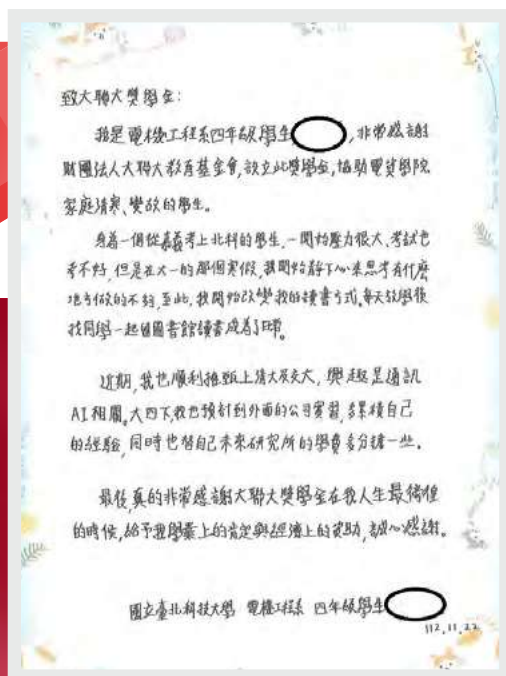 致大聯大獎學金:
我是電機工程系四年級學生 ,非常感謝
財團法人大聯大教育基金會,設立此獎學金,協助電資學院
家庭清寒、變故的學生。
身為一個從嘉義考上北科的學生,一開始壓力很大、考試也
考不好,但是在大一的那個寒假,我開始靜下心來思考有什麼
地方做的不夠,至此,我開始改變我的讀書方式,每天放學後
找同學一起留圖書館讀書成為了日常。
近期,我也順利推甄上清大及交大,興趣是通訊
AI相關。大四下,我也預計到外面的公司實習,多累積自己
的經驗,同時也替自己未來研究所的學費多分擔一些。
最後,真的非常感謝大聯大獎學金在我人生最徬徨
的時候,給予我學業上的肯定與經濟上的資助,誠心感謝。
國立臺北科技大學 電機工程系 四年級學生
112.11.22